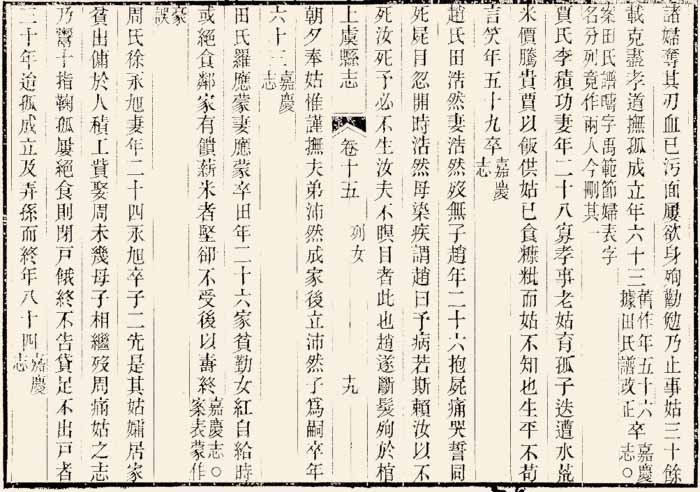 諸婦奪其刃血已污面屢欲身殉勸勉乃止事姑三十餘
載克盡孝道撫孤成立年六十三舊作年五十六卒嘉慶志○
據田氏譜改正
案田氏譜疇字禹範節婦表字
名分列竟作兩人今刪其一
賈氏李積功妻年二十八寡孝事老姑育孤子迭遭水荒
米價騰貴賈以飯供姑已食糠粃而姑不知也生平不苟
言笑年五十九卒嘉慶志
趙氏田浩然妻浩然歿無子趙年二十六抱屍痛哭誓同
死屍目忽開時浩然母染疾謂趙曰予病若斯賴汝以不
死汝死予必不生汝夫不瞑目者此也趙遂斷髮殉於棺
上虞縣志 卷十五 列女 十九
朝夕奉姑惟謹撫夫弟沛然成家後立沛然子為嗣卒年
六十三嘉慶志
田氏羅應蒙妻應蒙卒田年二十六家貧勤女紅自給時
或絕食鄰家有饋薪米者堅卻不受後以壽終嘉慶志○
案表蒙作
豪誤
周氏徐永旭妻年二十四永旭卒子二先是其姑孀居家
貧出傭於人積工貲娶周未幾母子相繼歿周痛姑之志
乃鬻十指鞠孤屢絕食則閉戸餓終不告貸足不出戸者
三十年迨孤成立及弄孫而終年八十四嘉慶志